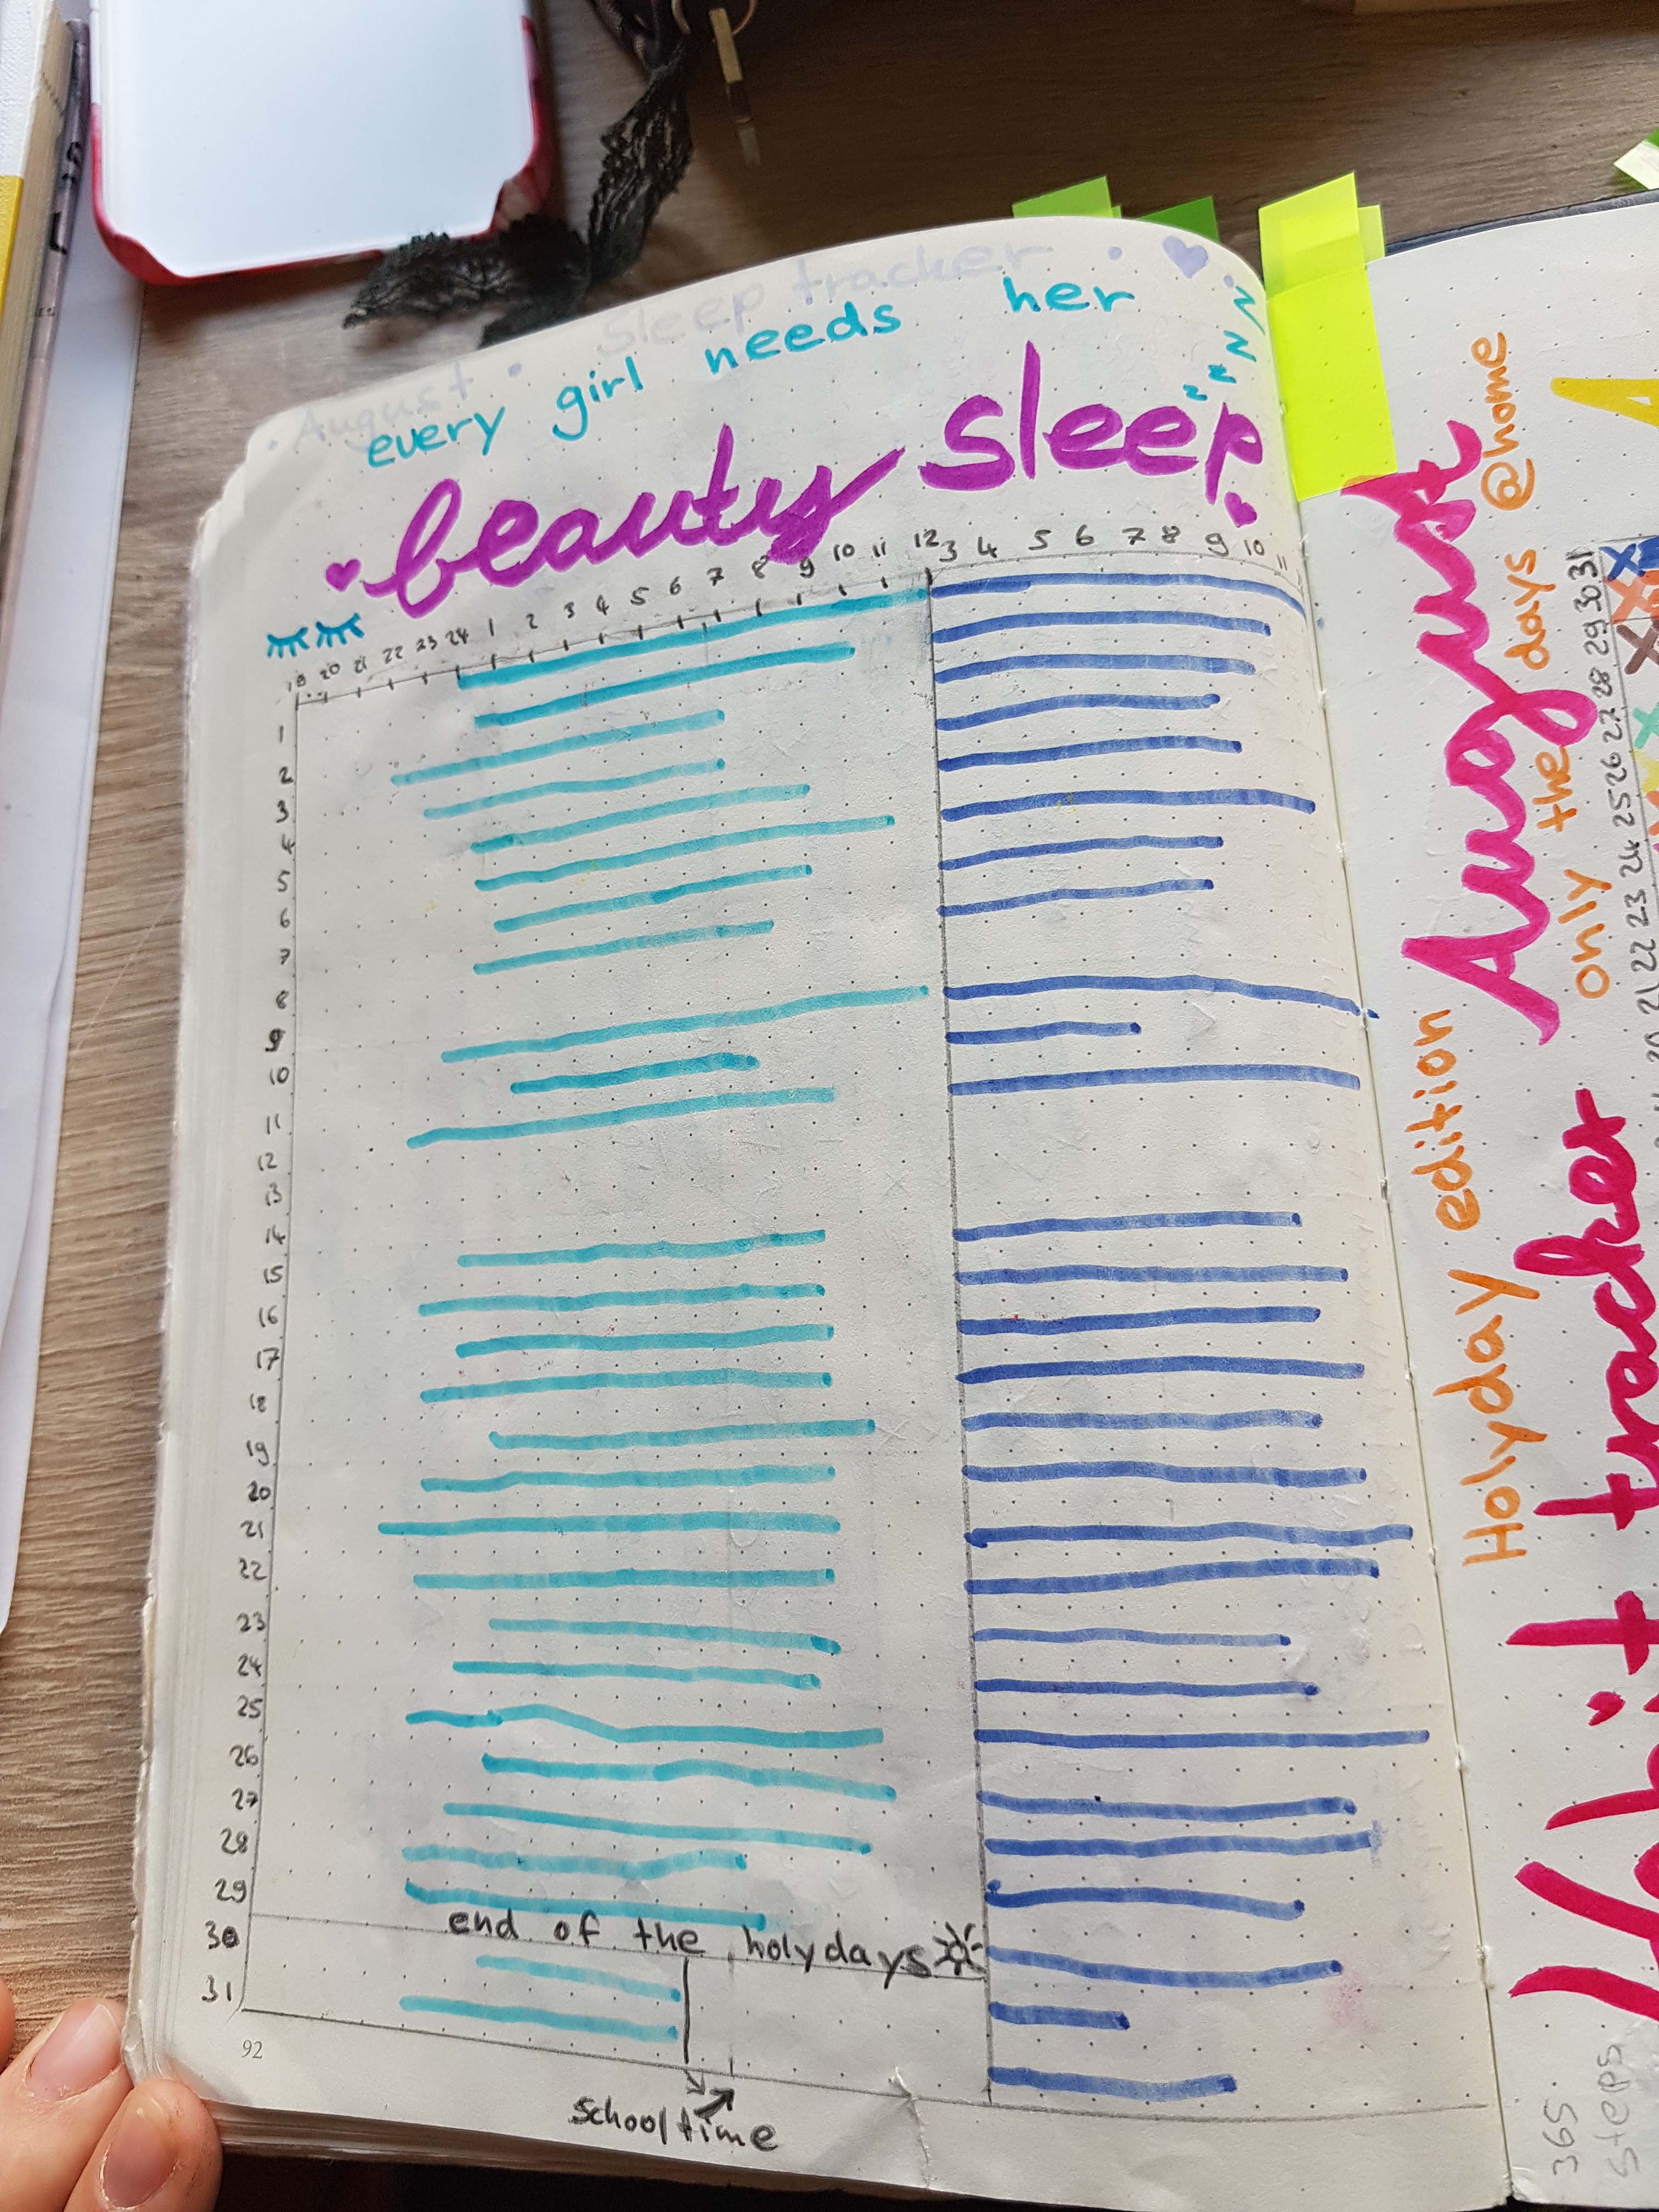 August • Sleep tracker •
every girl needs her
zzzzz
beauty sleep
19 20 21 22 23 24 1 2 3 4 5 6 7 8 9 10 11 12
3 4 5 6 7 8 9 10 11
1
2
3
4
5
6
7
8
9
10
11
12
13
14
15
16
17
18
19
20
21
22
23
24
25
26
27
28
29
30
31
end of the holydays
92
schooltime
Holyday edition
August
tracker
only the days @home
21 22 23 24 25 26 27 28 29 30 31
365
steps